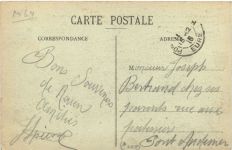 CARTE POSTALE
CORRESPONDANCE
ADRESSE
Bon Souvenir
de Rouen
Monsieur Joseph
Bertrand chez ses
parents rue aux
Pont Audemer
EURE